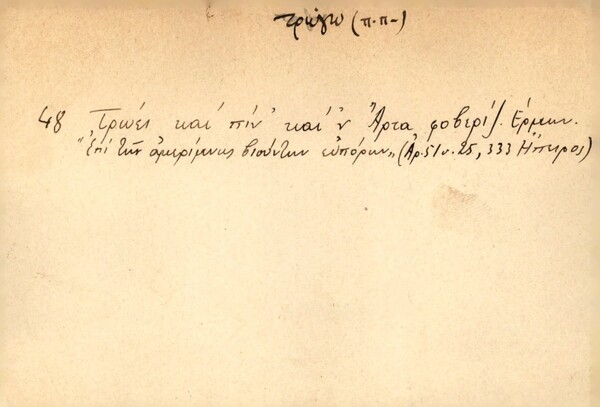 τρώγω (π.π-)
48 Τρώει και πίν' και 'ν Άρτα φοβερίζ'. Ερμην.
"Επί των αμερίμνως βιούντων ευπόρων" (Αρ. 51 ν. 25, 333 Ήπειρος)